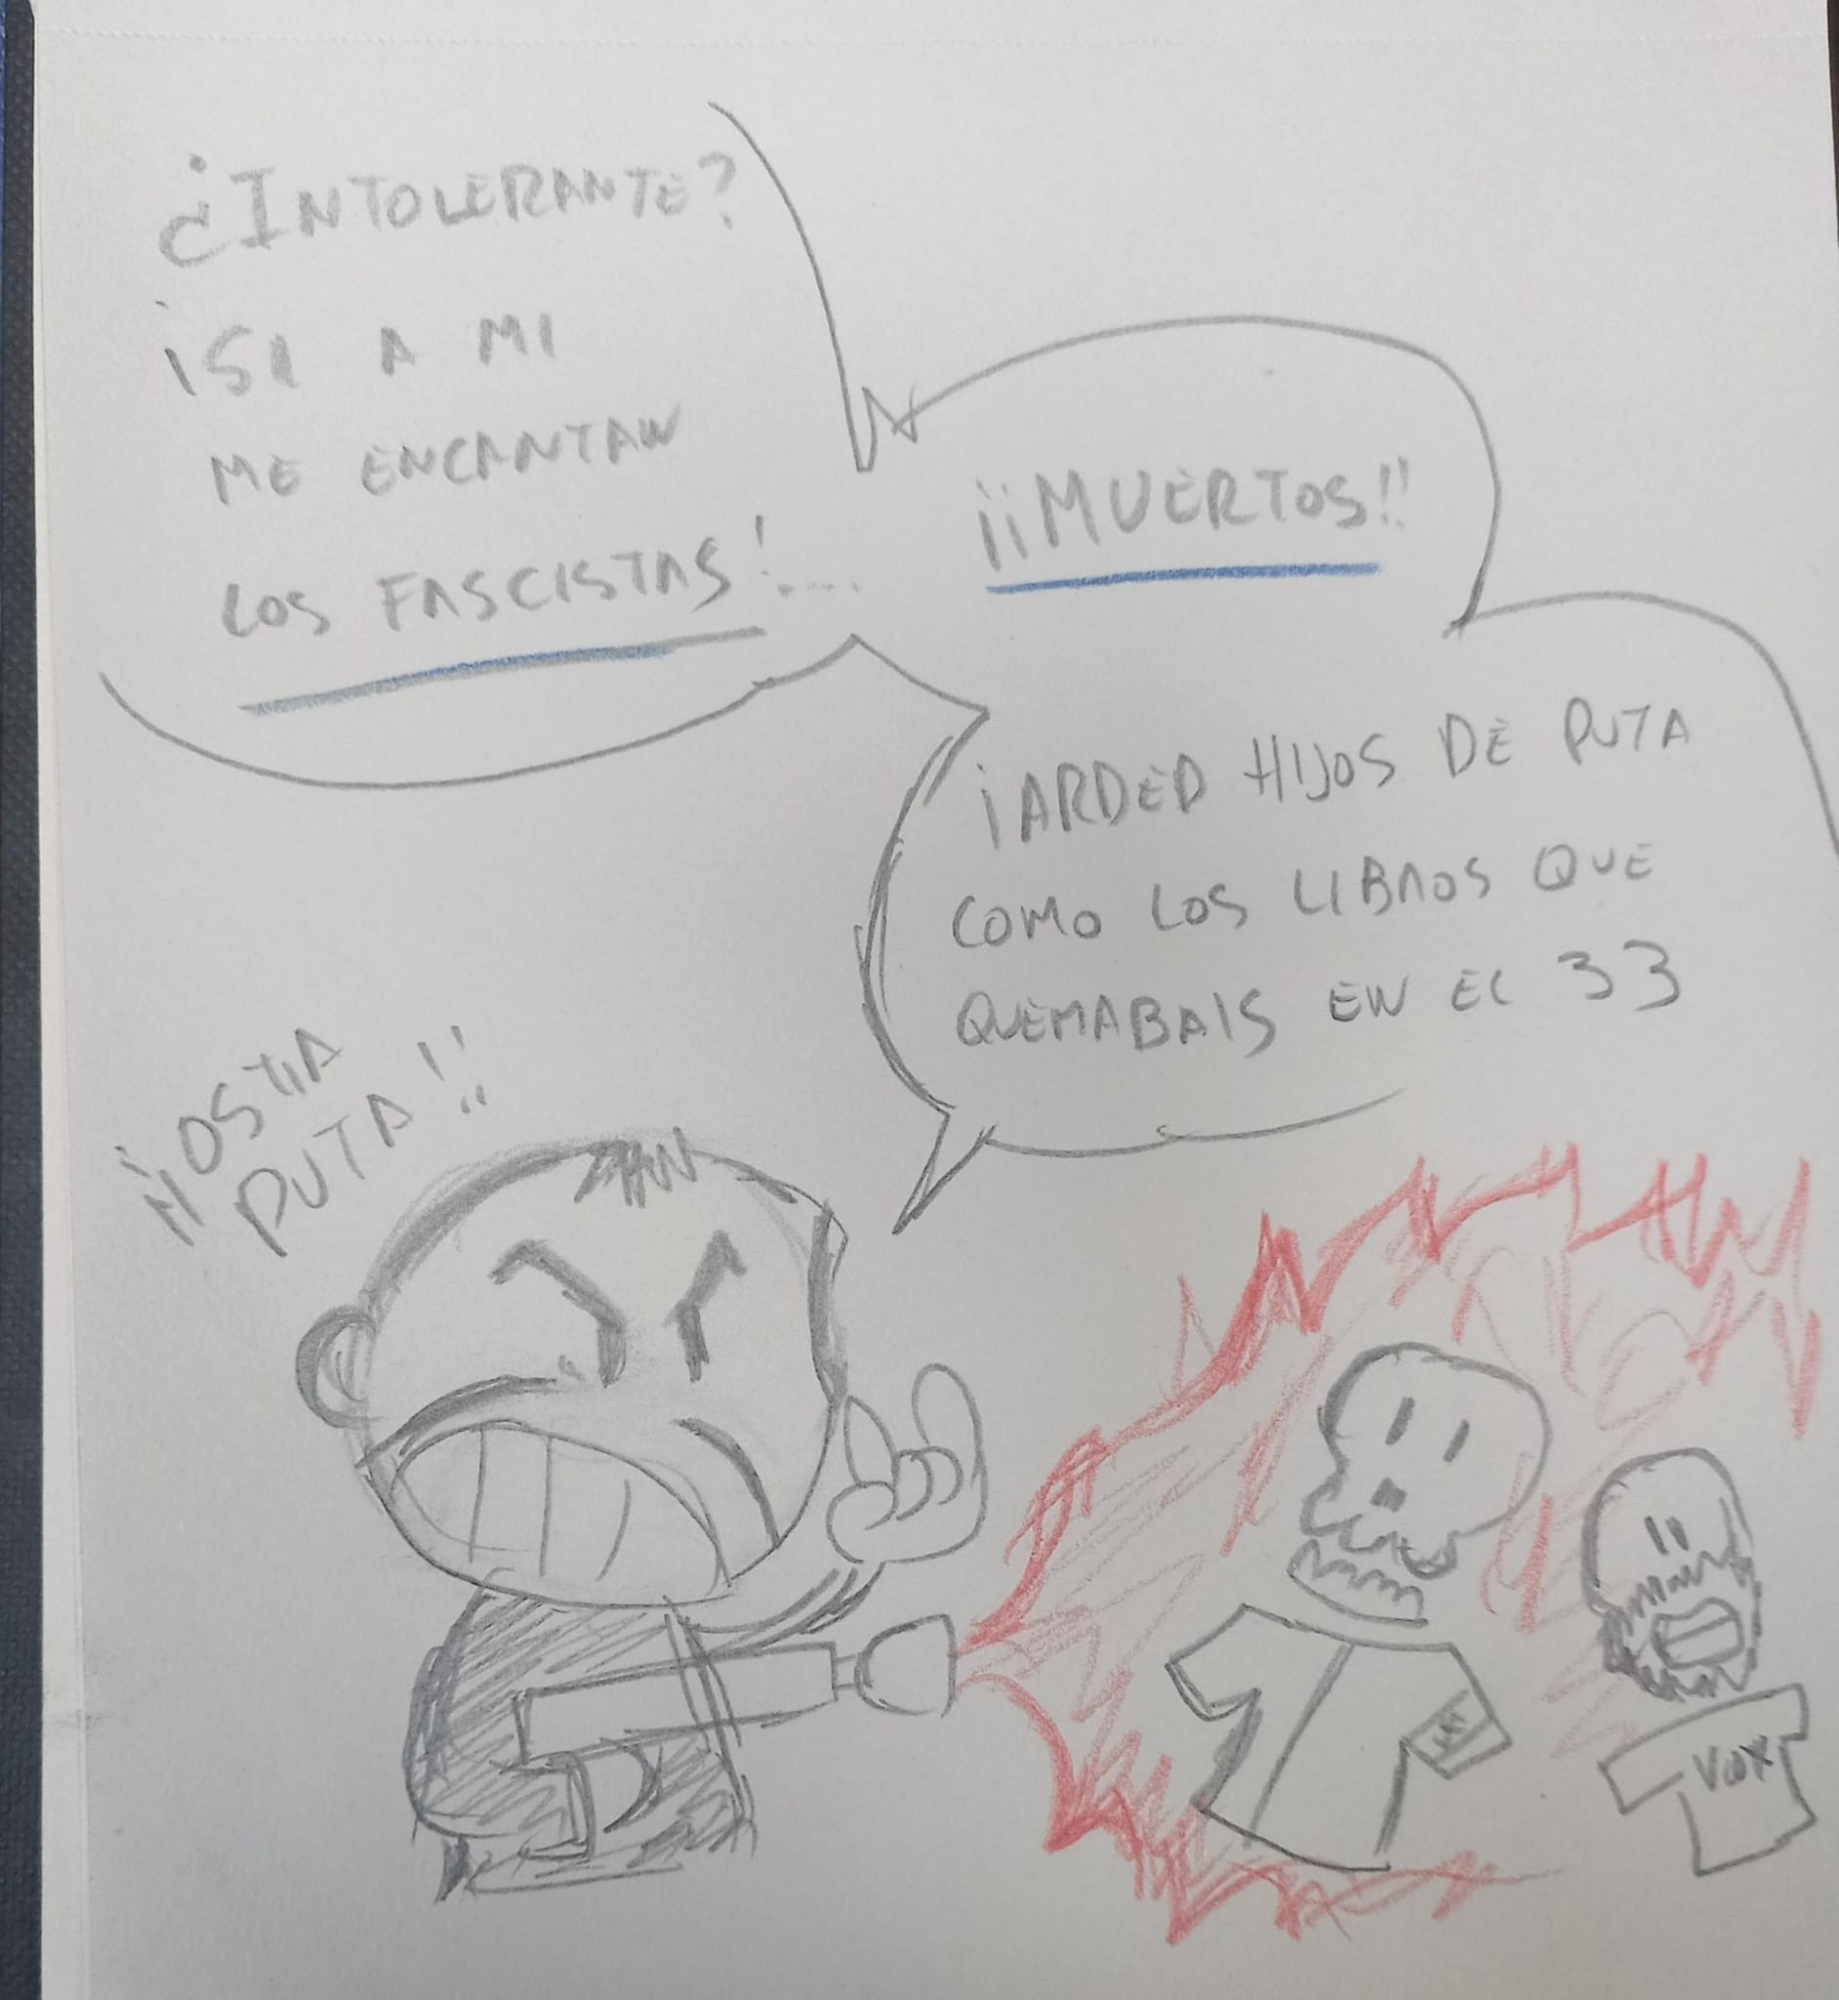 ¿INTOLERANTE?
¡SI A MI
ME ENCANTAN
LOS FASCISTAS!...
¡¡MUERTOS!!
¡ARDED HIJOS DE PUTA
COMO LOS LIBROS QUE
QUEMABAIS EN EL 33
¡¡OSTIA
PUTA!!
VOX